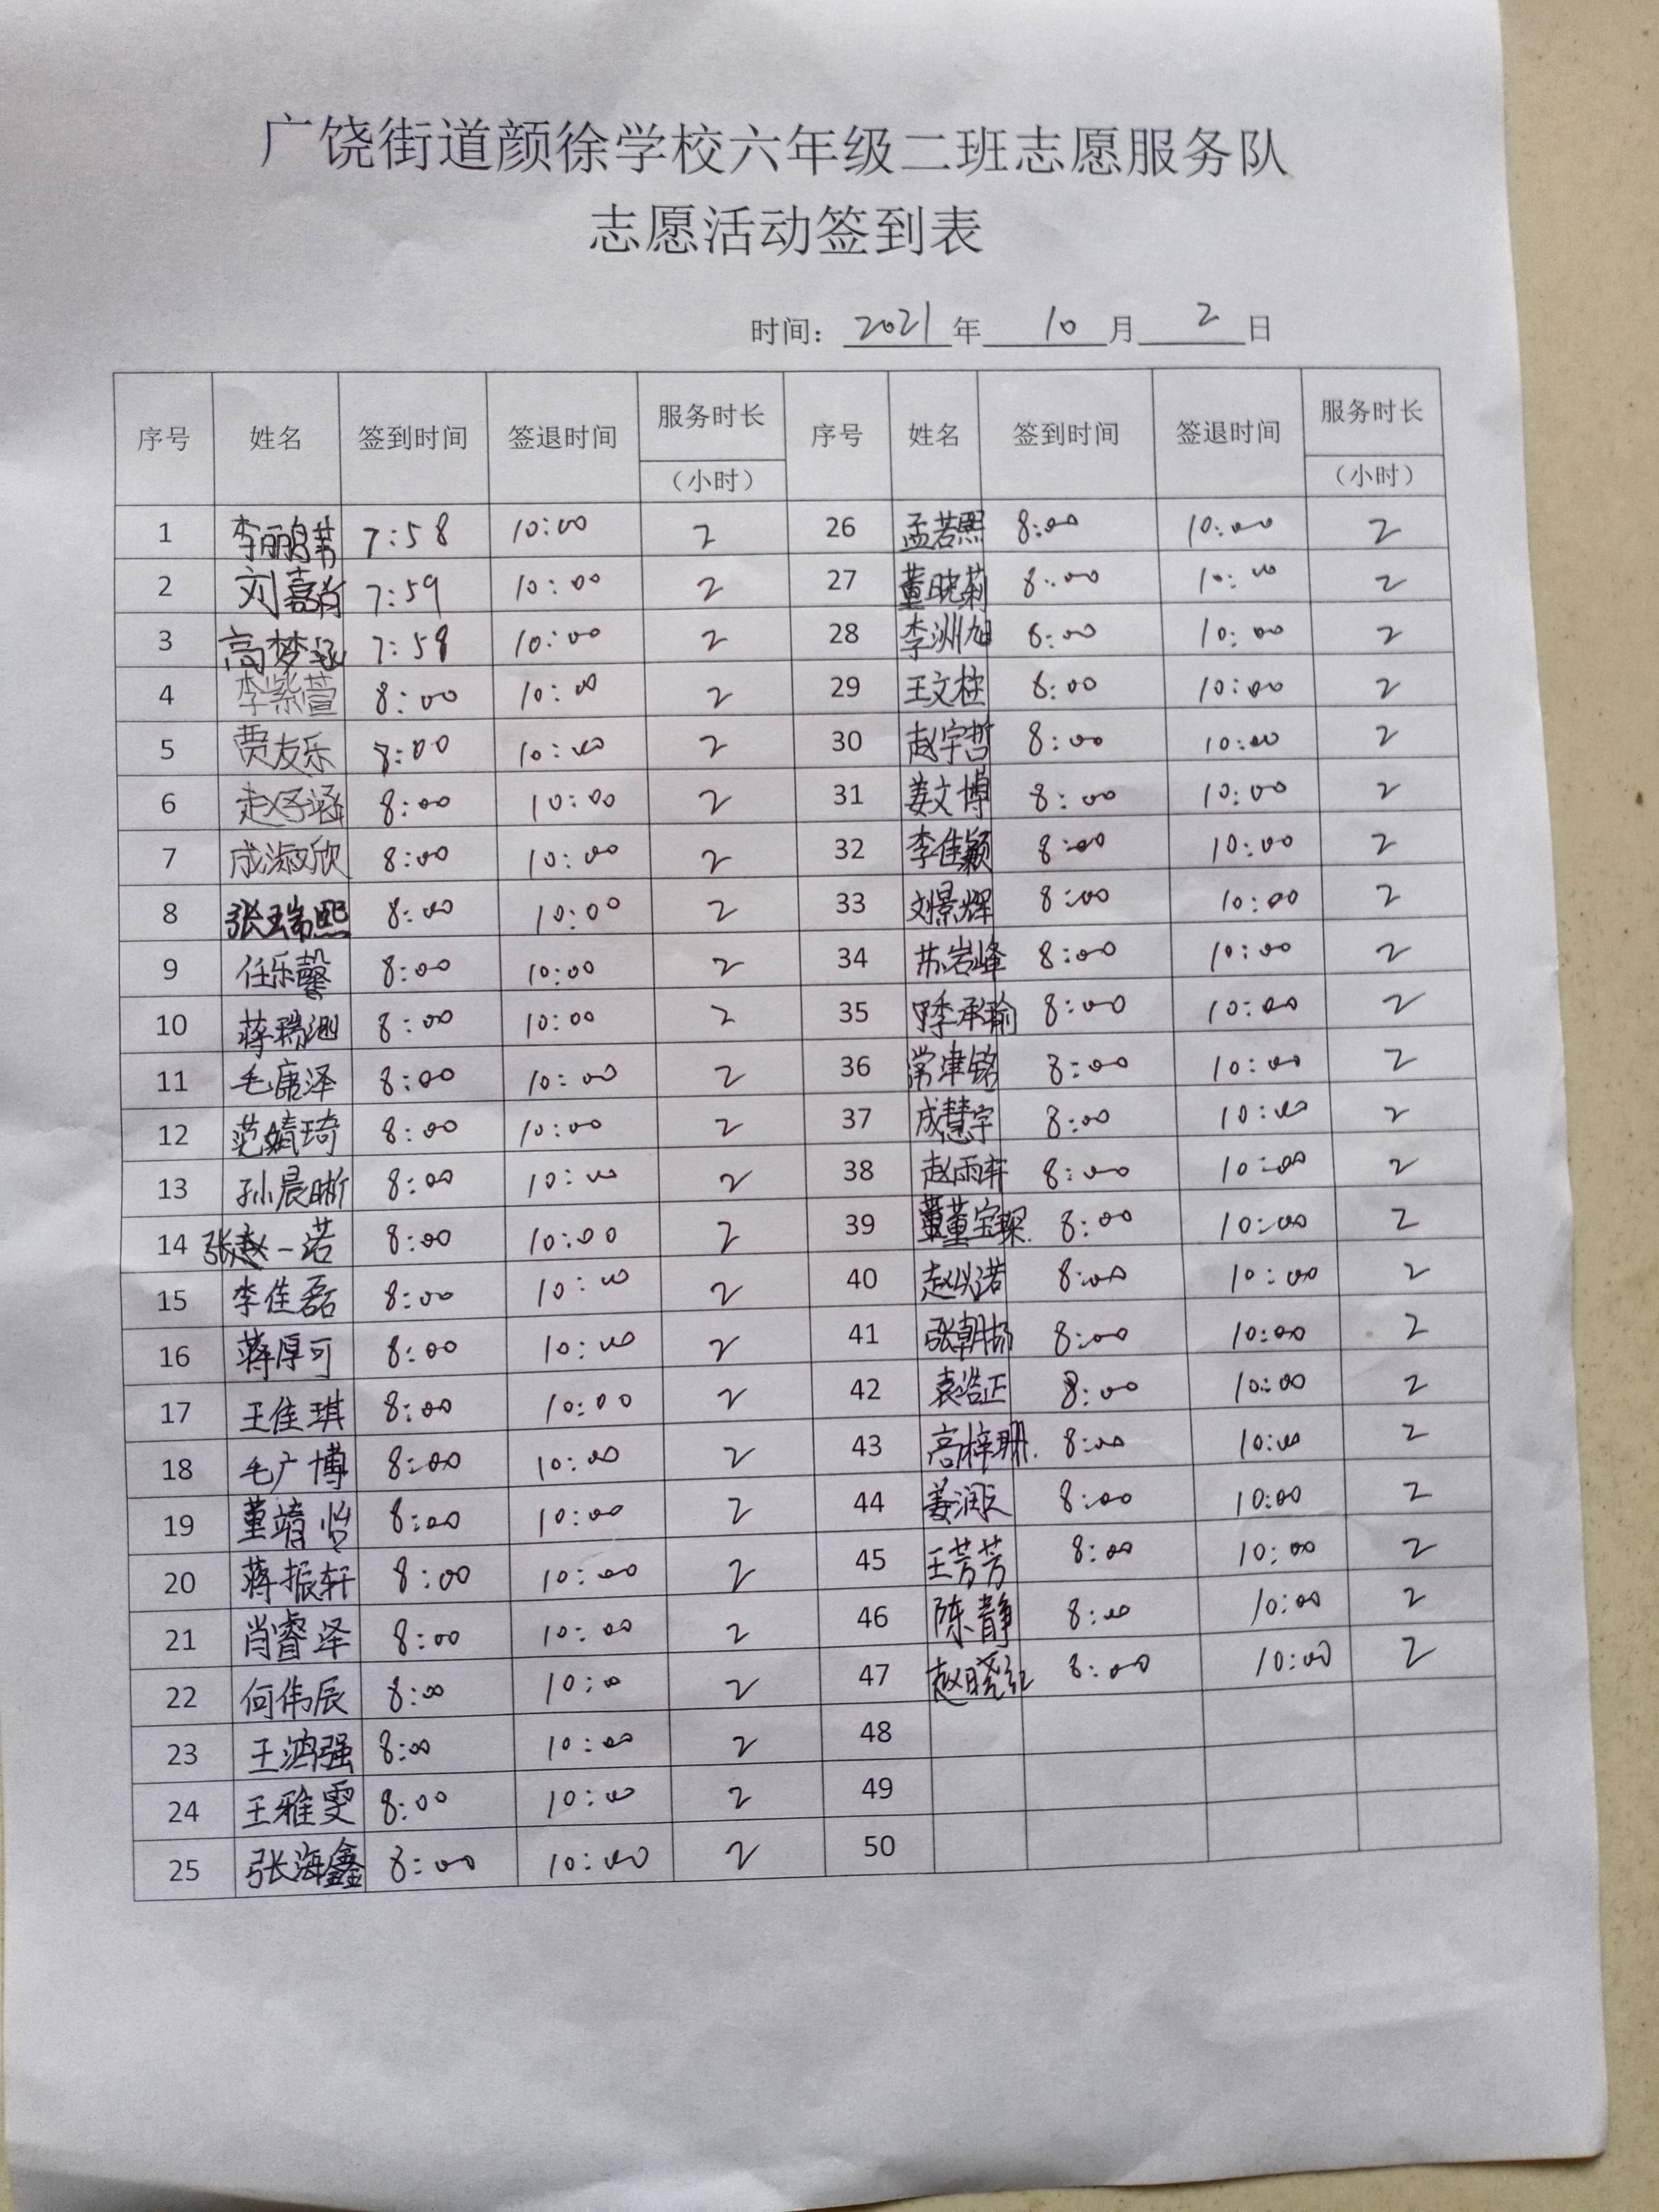 广饶街道颜徐学校六年级二班志愿服务队
志愿活动签到表
时间：2021年10月2日
序号 姓名 签到时间 签退时间 服务时长（小时） 序号 姓名 签到时间 签退时间 服务时长（小时）
1 7:58 10:00 2 26 孟若熙 8:00 10:00 2
2 刘嘉 7:59 10:00 2 27 董晓莉 8:00 10:00 2
3 高梦涵 7:59 10:00 2 28 李洲旭 8:00 10:00 2
4 李紫萱 8:00 10:00 2 29 王文 8:00 10:00 2
5 贾友乐 8:00 10:00 2 30 赵宇哲 8:00 10:00 2
6 赵子涵 8:00 10:00 2 31 姜文博 8:00 10:00 2
7 成淑欣 8:00 10:00 2 32 李佳颖 8:00 10:00 2
8 张瑞熙 8:00 10:00 2 33 刘景辉 8:00 10:00 2
9 任乐馨 8:00 10:00 2 34 苏岩峰 8:00 10:00 2
10 蒋瑞 8:00 10:00 2 35 季承瑜 8:00 10:00 2
11 毛唐泽 8:00 10:00 2 36 常津铭 8:00 10:00 2
12 范婧琦 8:00 10:00 2 37 成慧宇 8:00 10:00 2
13 孙晨晰 8:00 10:00 2 38 赵雨轩 8:00 10:00 2
14 张赵一诺 8:00 10:00 2 39 董宝琛 8:00 10:00 2
15 李佳磊 8:00 10:00 2 40 赵以诺 8:00 10:00 2
16 蒋厚可 8:00 10:00 2 41 张朝 8:00 10:00 2
17 王佳琪 8:00 10:00 2 42 袁浩正 8:00 10:00 2
18 毛广博 8:00 10:00 2 43 高梓珊 8:00 10:00 2
19 董靖怡 8:00 10:00 2 44 姜润 8:00 10:00 2
20 蒋振轩 8:00 10:00 2 45 王芳芳 8:00 10:00 2
21 肖睿泽 8:00 10:00 2 46 陈静 8:00 10:00 2
22 何伟辰 8:00 10:00 2 47 赵晓红 8:00 10:00 2
23 王鸿强 8:00 10:00 2 48
24 王雅雯 8:00 10:00 2 49
25 张海鑫 8:00 10:00 2 50